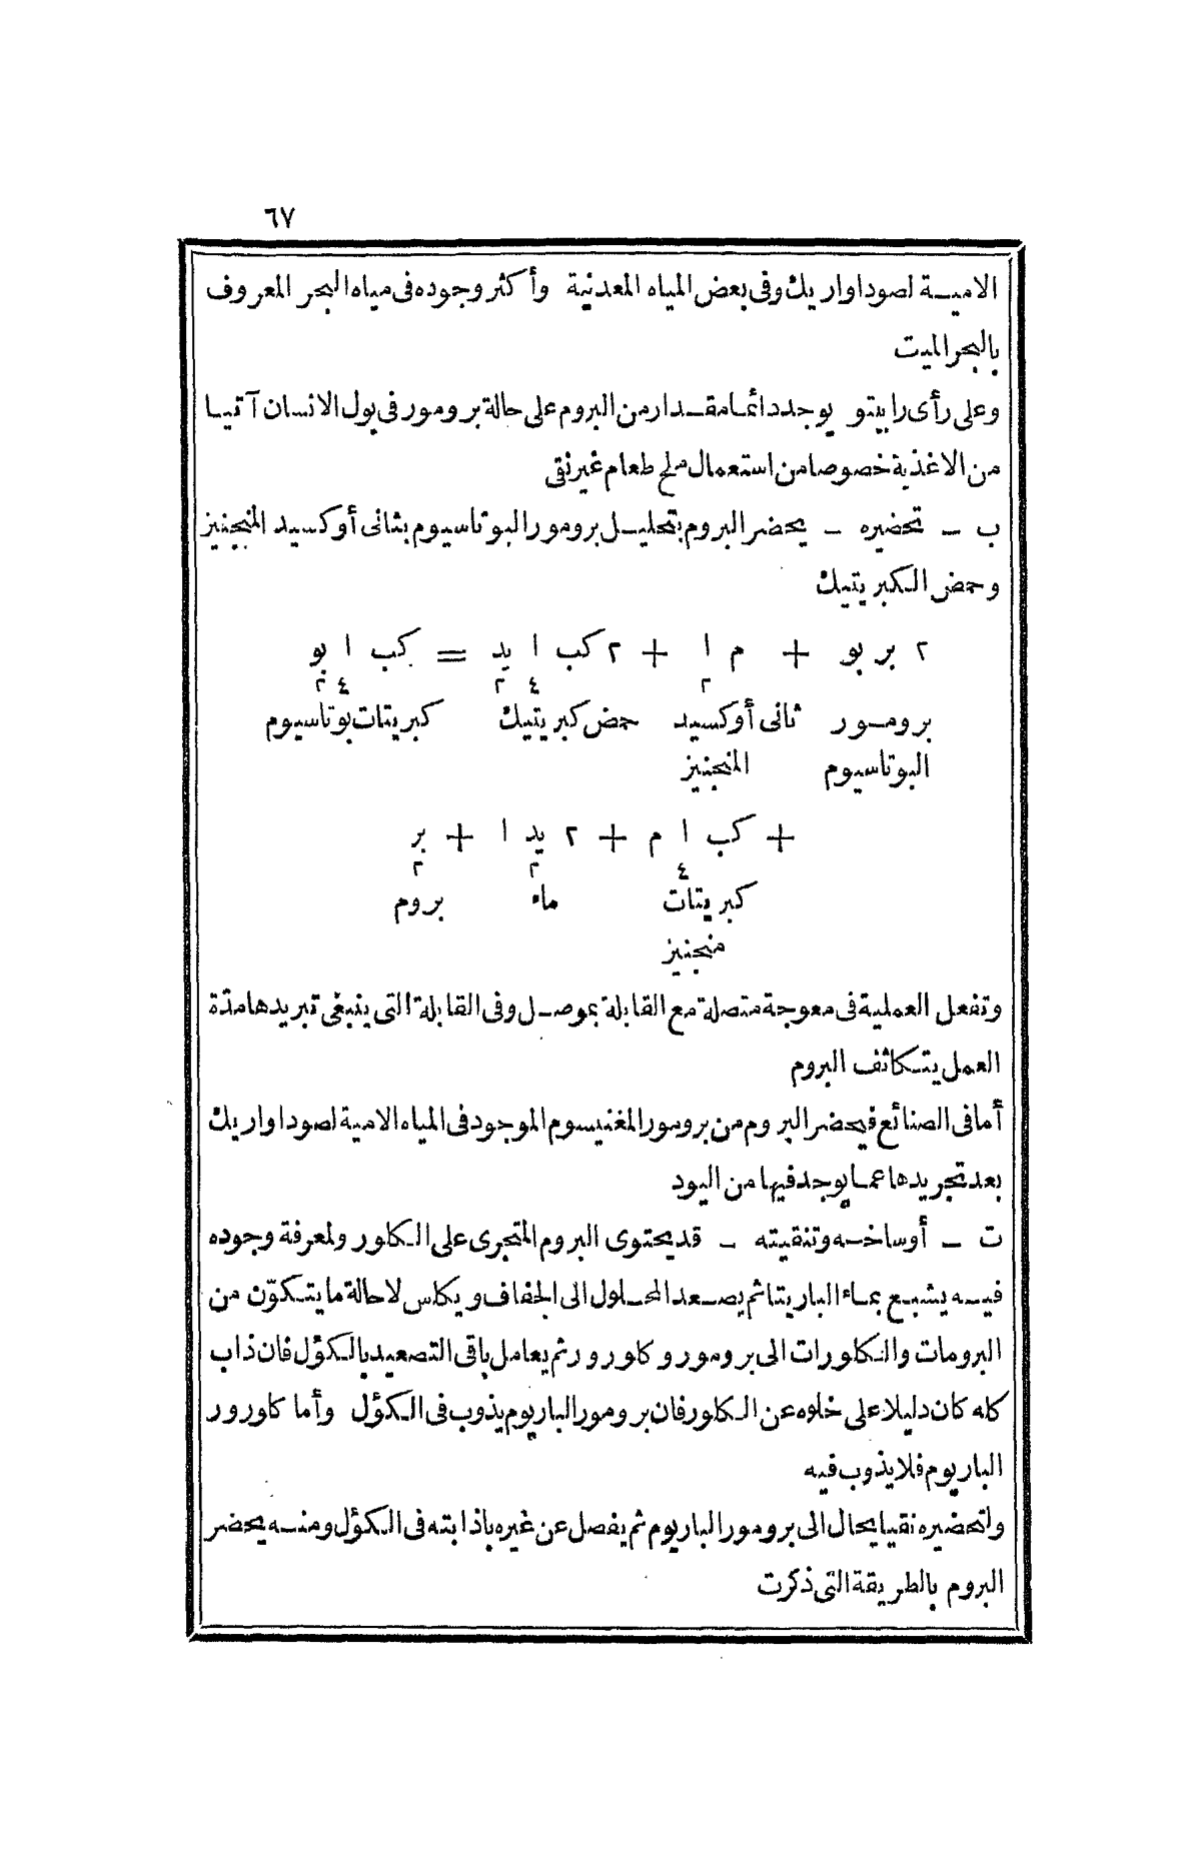 ٦٧
الاميــة لصوداواريك وفى بعض المياه المعدنية وأكثر وجوده فى مياه البحر المعروف
بالبحر الميت
وعلى رأى رابيتو يوجد دائما مقدار من البروم على حالة برومور فى بول الانسان آتيا
من الاغذية خصوصا من استعمال ملح طعام غير نقى
ب ـ تحضيره ـ يحضر البروم بتحليل برومور البوتاسيوم بثانى أوكسيد المنجنيز
وحمض الكبريتيك
٢ بر بو + م ا + ٢ كب ا يد = كب ا بو
٢ ٤ ٢ ٤ ٢
برومور ثانى أوكسيد حمض كبريتيك كبريتات بوتاسيوم
البوتاسيوم المنجنيز
+ كب ا م + ٢ يد ا + بر
٤ ٢ ٢
كبريتات ماء بروم
منجنيز
وتفعل العملية فى معوجة متصلة مع القابلة بموصل وفى القابلة التى ينبغى تبريدها مدّة
العمل يتكاثف البروم
أما فى الصنائع فيحضر البروم من برومور المغنيسوم الموجود فى المياه الامية لصوداواريك
بعد تجريدها عما يوجد فيها من اليود
ت ـ أوساخه وتنقيته ـ قد يحتوى البروم المتجرى على الكلور ولمعرفة وجوده
فيه يشبع بماء الباريتا ثم يصعد المحلول الى الجفاف ويكلس لاحالة ما يتكوّن من
البرومات والكلورات الى برومور وكلورور ثم يعامل باقى التصعيد بالكؤل فان ذاب
كله كان دليلا على خلوه عن الكلور فان برومور الباريوم يذوب فى الكؤل وأما كلورور
الباريوم فلا يذوب فيه
ولتحضيره نقيا يحال الى برومور الباريوم ثم يفصل عن غيره باذابته فى الكؤل ومنه يحضر
البروم بالطريقة التى ذكرت